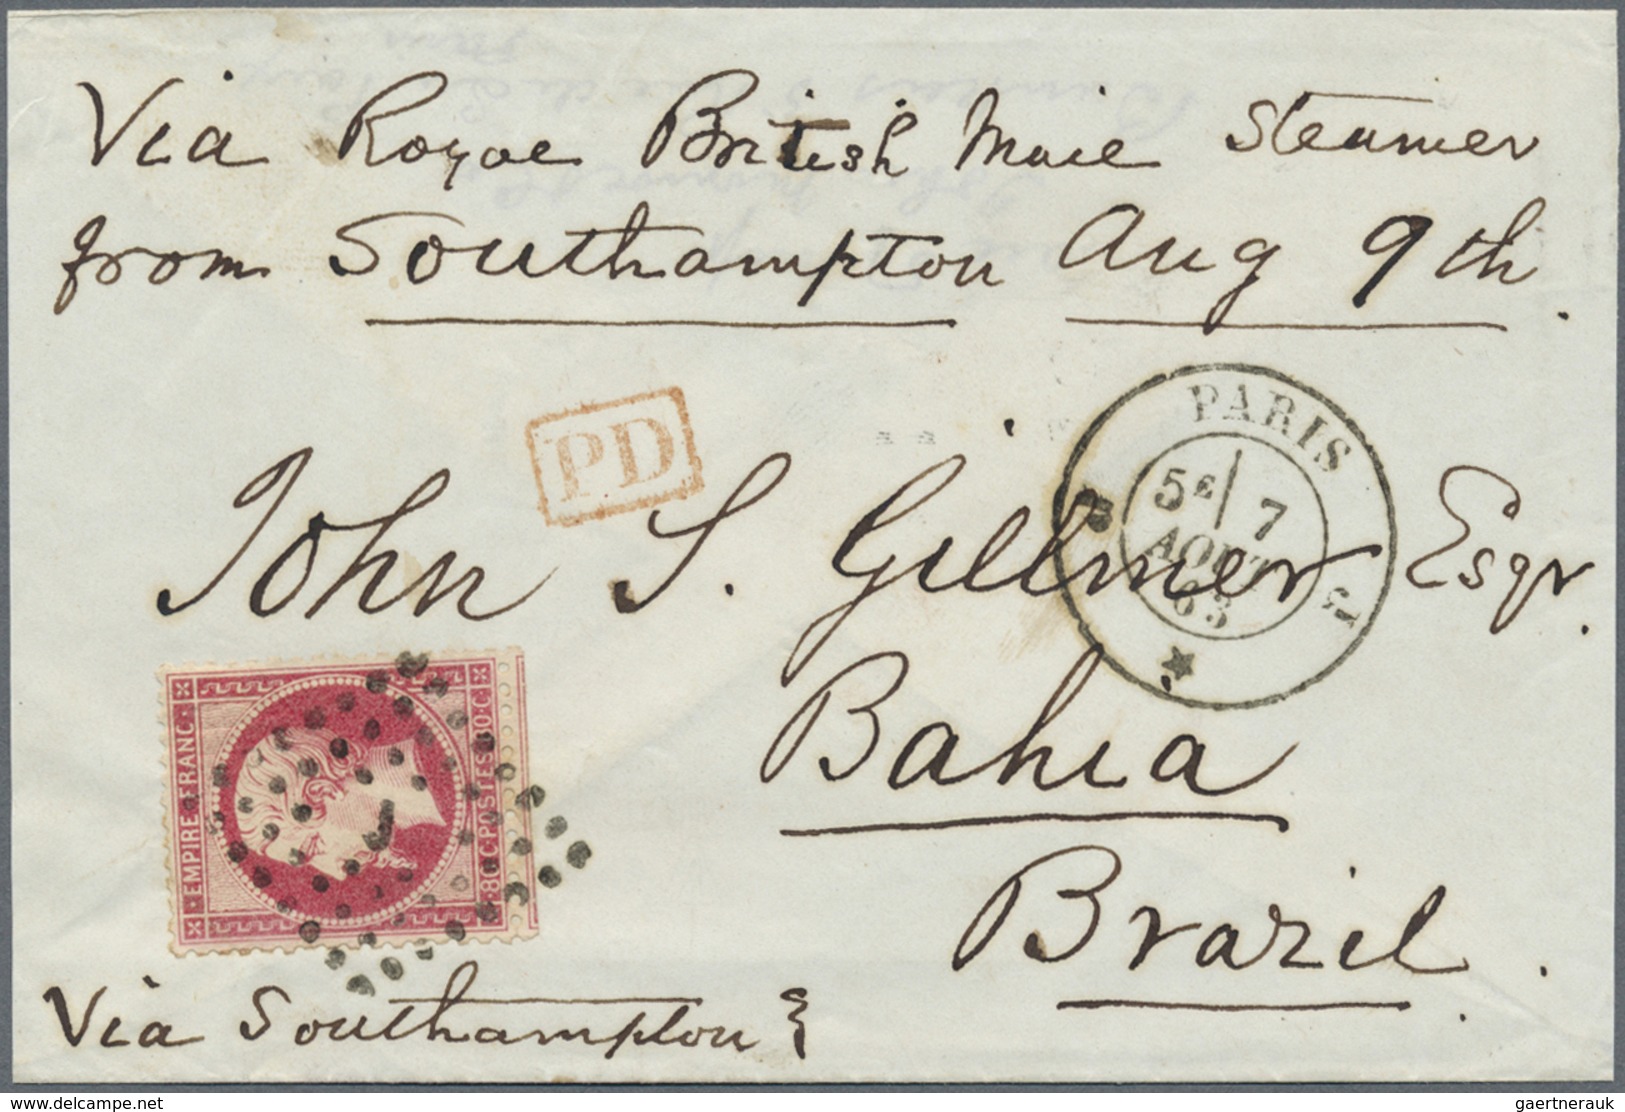 Via Royal British Mail Steamer
from Southampton Aug 9th.
PD
PARIS
5E 7
AOUT
63
John S. Gillmer Esqr.
Bahia
Brazil.
EMPIRE FRANC.
80 C. POSTES 80 C.
Via Southampton
delcampe.net
gaertnerauk